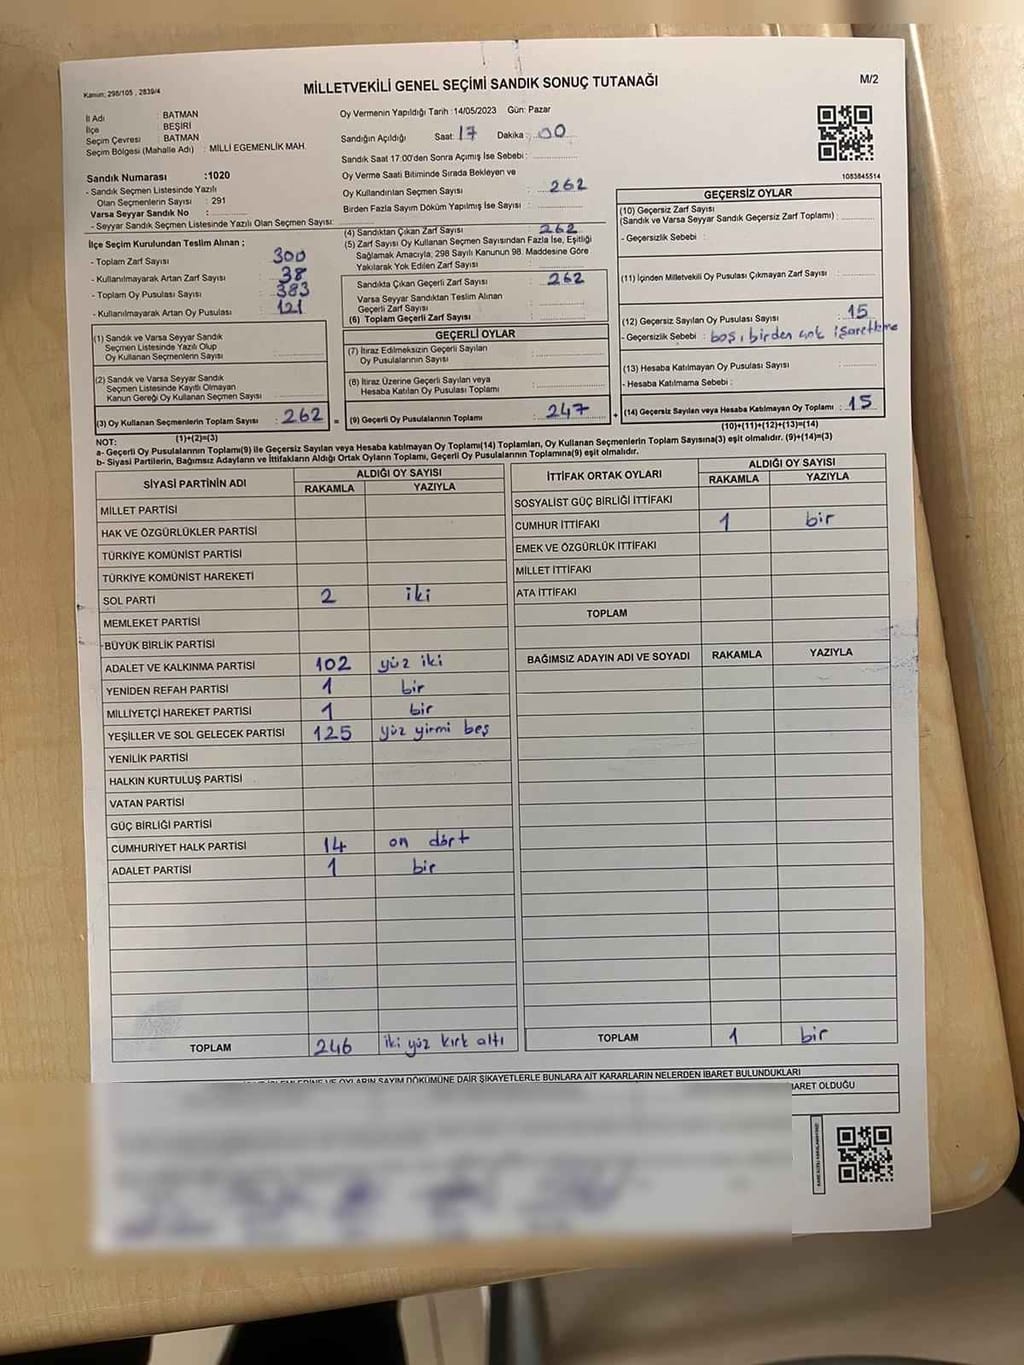 MİLLETVEKİLİ GENEL SEÇİMİ SANDIK SONUÇ TUTANAĞI
M/2
Kanun; 298/105 , 2839/4
İl Adı : BATMAN
İlçe : BEŞİRİ
Seçim Çevresi : BATMAN
Seçim Bölgesi (Mahalle Adı) : MİLLİ EGEMENLİK MAH.
Oy Vermenin Yapıldığı Tarih : 14/05/2023 Gün: Pazar
Sandığın Açıldığı Saat: 17 Dakika : 00
Sandık Saat 17:00'den Sonra Açımış İse Sebebi :
Oy Verme Saati Bitiminde Sırada Bekleyen ve
Oy Kullandırılan Seçmen Sayısı : 262
Birden Fazla Sayım Döküm Yapılmış İse Sayısı :
1083845514
Sandık Numarası :1020
- Sandık Seçmen Listesinde Yazılı
Olan Seçmenlerin Sayısı : 291
Varsa Seyyar Sandık No :
- Seyyar Sandık Seçmen Listesinde Yazılı Olan Seçmen Sayısı:
İlçe Seçim Kurulundan Teslim Alınan ;
- Toplam Zarf Sayısı : 300
- Kullanılmayarak Artan Zarf Sayısı : 38
- Toplam Oy Pusulası Sayısı : 383
- Kullanılmayarak Artan Oy Pusulası : 121
(1) Sandık ve Varsa Seyyar Sandık
Seçmen Listesinde Yazılı Olup
Oy Kullanan Seçmenlerin Sayısı :
(2) Sandık ve Varsa Seyyar Sandık
Seçmen Listesinde Kayıtlı Olmayan
Kanun Gereği Oy Kullanan Seçmen Sayısı :
(3) Oy Kullanan Seçmenlerin Toplam Sayısı : 262 =
(1)+(2)=(3)
(4) Sandıktan Çıkan Zarf Sayısı : 262
(5) Zarf Sayısı Oy Kullanan Seçmen Sayısından Fazla İse, Eşitliği
Sağlamak Amacıyla, 298 Sayılı Kanunun 98. Maddesine Göre
Yakılarak Yok Edilen Zarf Sayısı :
Sandıkta Çıkan Geçerli Zarf Sayısı : 262
Varsa Seyyar Sandıktan Teslim Alınan
Geçerli Zarf Sayısı :
(6) Toplam Geçerli Zarf Sayısı :
GEÇERLİ OYLAR
(7) İtiraz Edilmeksizin Geçerli Sayılan
Oy Pusulalarının Sayısı :
(8) İtiraz Üzerine Geçerli Sayılan veya
Hesaba Katılan Oy Pusulası Toplamı :
(9) Geçerli Oy Pusulalarının Toplamı : 247 +
GEÇERSİZ OYLAR
(10) Geçersiz Zarf Sayısı
(Sandık ve Varsa Seyyar Sandık Geçersiz Zarf Toplamı) :
- Geçersizlik Sebebi :
(11) İçinden Milletvekili Oy Pusulası Çıkmayan Zarf Sayısı :
(12) Geçersiz Sayılan Oy Pusulası Sayısı : 15
- Geçersizlik Sebebi : boş, birden çok işaretleme
(13) Hesaba Katılmayan Oy Pusulası Sayısı :
- Hesaba Katılmama Sebebi :
(14) Geçersiz Sayılan veya Hesaba Katılmayan Oy Toplamı : 15
(10)+(11)+(12)+(13)=(14)
NOT:
a- Geçerli Oy Pusulalarının Toplamı(9) ile Geçersiz Sayılan veya Hesaba katılmayan Oy Toplamı(14) Toplamları, Oy Kullanan Seçmenlerin Toplam Sayısına(3) eşit olmalıdır. (9)+(14)=(3)
b- Siyasi Partilerin, Bağımsız Adayların ve İttifakların Aldığı Ortak Oyların Toplamı, Geçerli Oy Pusulalarının Toplamına(9) eşit olmalıdır.
SİYASİ PARTİNİN ADI
ALDIĞI OY SAYISI
RAKAMLA YAZIYLA
MİLLET PARTİSİ
HAK VE ÖZGÜRLÜKLER PARTİSİ
TÜRKİYE KOMÜNİST PARTİSİ
TÜRKİYE KOMÜNİST HAREKETİ
SOL PARTİ 2 iki
MEMLEKET PARTİSİ
BÜYÜK BİRLİK PARTİSİ
ADALET VE KALKINMA PARTİSİ 102 yüz iki
YENİDEN REFAH PARTİSİ 1 bir
MİLLİYETÇİ HAREKET PARTİSİ 1 bir
YEŞİLLER VE SOL GELECEK PARTİSİ 125 yüz yirmi beş
YENİLİK PARTİSİ
HALKIN KURTULUŞ PARTİSİ
VATAN PARTİSİ
GÜÇ BİRLİĞİ PARTİSİ
CUMHURİYET HALK PARTİSİ 14 on dört
ADALET PARTİSİ 1 bir
TOPLAM 246 iki yüz kırk altı
İTTİFAK ORTAK OYLARI
ALDIĞI OY SAYISI
RAKAMLA YAZIYLA
SOSYALİST GÜÇ BİRLİĞİ İTTİFAKI
CUMHUR İTTİFAKI 1 bir
EMEK VE ÖZGÜRLÜK İTTİFAKI
MİLLET İTTİFAKI
ATA İTTİFAKI
TOPLAM
BAĞIMSIZ ADAYIN ADI VE SOYADI RAKAMLA YAZIYLA
TOPLAM 1 bir
OYLARIN SAYIM DÖKÜMÜNE DAİR ŞİKAYETLERLE BUNLARA AİT KARARLARIN NELERDEN İBARET BULUNDUKLARI
OLDUĞU